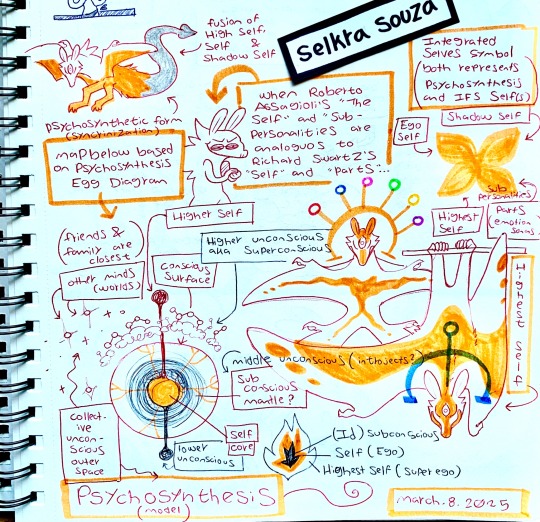 fusion of
High Self,
Self &
Shadow Self
Selkra Souza
Integrated
Selves Symbol
(both represents
Psychosynthesis
and IFS Self(s)
psychosynthetic form
(syncrinization)
when Roberto
Assagioli's "The
Self" and "Sub-
Personalities are
analogous to
Richard Swartz's
"Self" and "Parts"...
Shadow Self
Ego
Self
map below based
on Psychosynthesis
Egg Diagram
Sub
personalities
Highest
Self
Parts
(emotion
sonas)
Higher Self
friends &
family are
closest
Higher unconscious
aka Superconscious
other minds
(worlds)
Conscious
Surface
Highest Self
middle unconscious (introjects?)
Sub
conscious
mantle?
collect-
ive
uncon-
scious
outer
space
Self
core
lower
unconscious
(Id) subconscious
Self (Ego)
Highest Self (super ego)
Psychosynthesis
(model)
march.8.2025